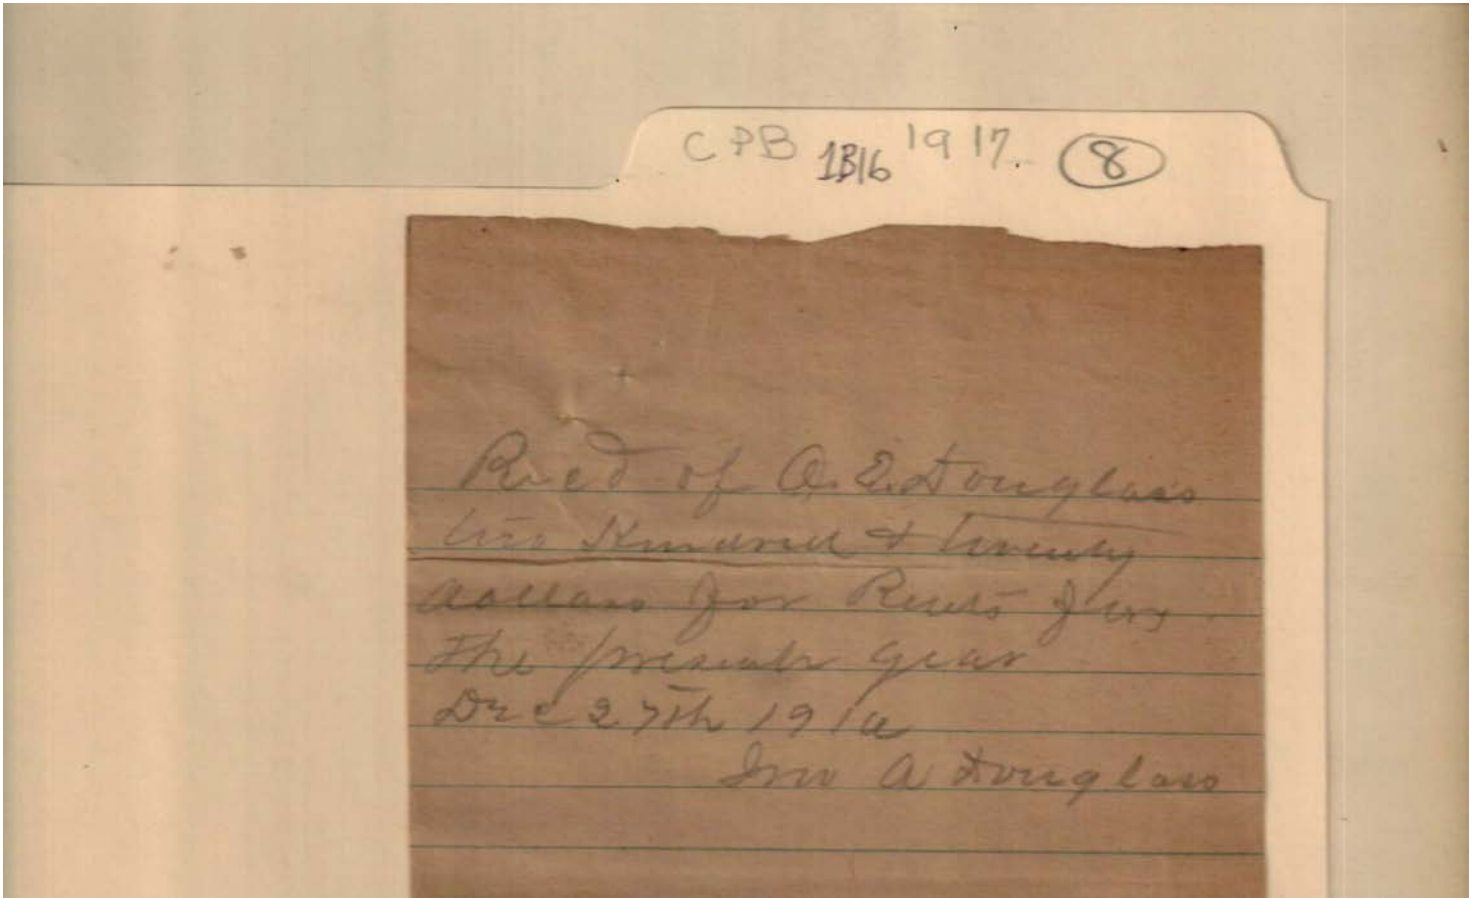 CPB 1B16 1917. 8
Rec'd of A. E. Douglass
two Hundred & twenty
dollars for Rents for
the present year
Dec 27th 1916
Jno A Douglass